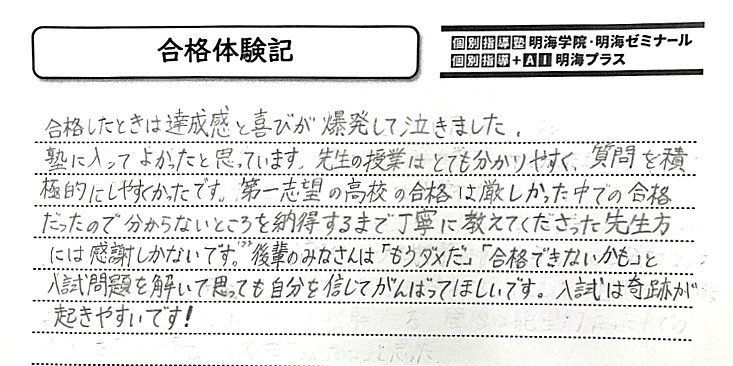 合格体験記
個別指導塾 明海学院・明海ゼミナール
個別指導+AI 明海プラス
合格したときは達成感と喜びが爆発して泣きました。
塾に入ってよかったと思っています。先生の授業はとても分かりやすく、質問を積
極的にしやすくかったです。第一志望の高校の合格は厳しかった中での合格
だったので分からないところを納得するまで丁寧に教えてくださった先生方
には感謝しかないです。後輩のみなさんは「もうダメだ」「合格できないかも」と
入試問題を解いて思っても自分を信じてがんばってほしいです。入試は奇跡が
起きやすいです!